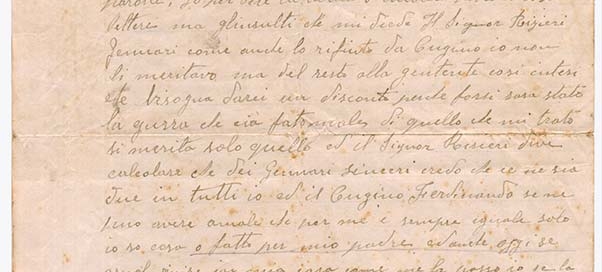 lettere ma gl'insulti che mi diede Il Signor Risieri
Gennari come anche lo rifiuto da Cugino io non
li meritavo ma del resto alla gente così intesi
bisogna darci un disconto perche forsi sara stato
la guerra che cia fato male di quello che mi trato
si merita solo quello ed il Signor Risieri deve
calcolare che dei Gennari sinceri credo che ce ne sia
due in tutti io ed il Cugino Ferdinando se ne
puo avere amale che per me è sempre iguale solo
io so cosa o fatto per mio padre ed anche oggi se
una casa come me la posso io se la